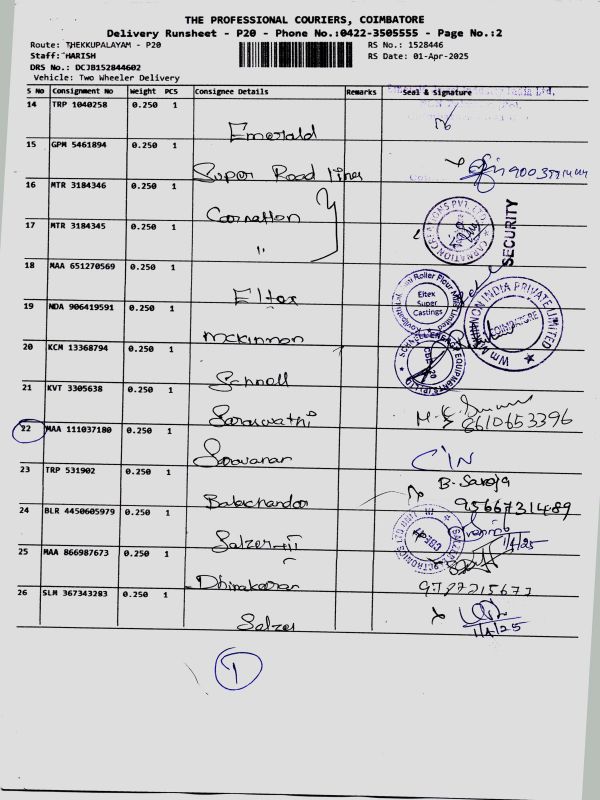 THE PROFESSIONAL COURIERS, COIMBATORE
Delivery Runsheet - P20 - Phone No.:0422-3505555 - Page No.:2
Route: THEKKUPALAYAM - P20
RS No.: 1528446
Staff: HARISH
RS Date: 01-Apr-2025
DRS No.: DCJB152844602
Vehicle: Two Wheeler Delivery
S No Consignment No Weight PCS Consignee Details Remarks Seal & Signature
14 TRP 1040258 0.250 1 Emerald
15 GPM 5461894 0.250 1 Super Road lines
16 MTR 3184346 0.250 1 Carnation
CARNATION CREATIONS PVT. LTD.
SECURITY
17 MTR 3184345 0.250 1 "
18 MAA 651270569 0.250 1 Eltex
Eltex Super Castings
Roller Flour Mill Limited
19 NDA 906419591 0.250 1 mckinnon
INDIA PRIVATE LIMITED
COIMBATORE
20 KCM 13368794 0.250 1 Schnell
SCHNELL ENERGY EQUIPMENTS (P) LTD
21 KVT 3305638 0.250 1 Saraswathi
8610653396
22 MAA 111037180 0.250 1 Saravanan C/N
23 TRP 531902 0.250 1 Balachandar
B. Saroja
9566731489
24 BLR 4450605979 0.250 1 Salzer-III
1/4/25
25 MAA 866987673 0.250 1 Dhinakaran
9787215677
26 SLM 367343283 0.250 1 Salzer
1/4/25
1